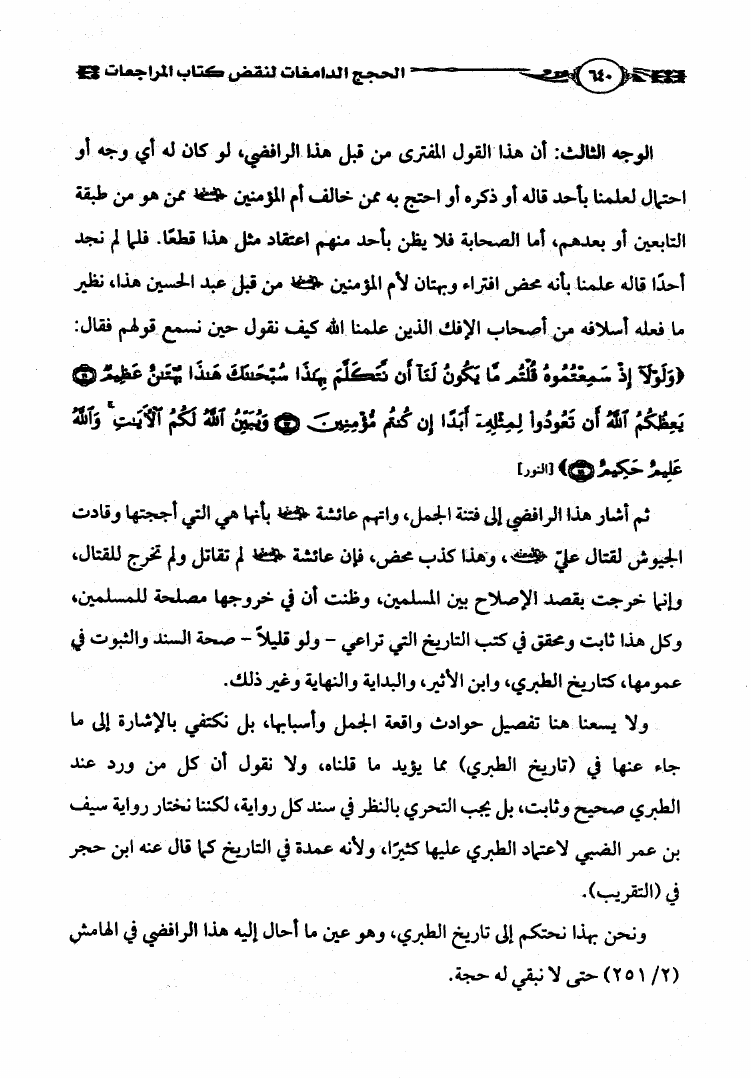 ٦٤٠ الحجج الدامغات لنقض كتاب المراجعات
الوجه الثالث: أن هذا القول المفترى من قبل هذا الرافضي، لو كان له أي وجه أو
احتمال لعلمنا بأحد قاله أو ذكره أو احتج به ممن خالف أم المؤمنين رضي الله عنها ممن هو من طبقة
التابعين أو بعدهم، أما الصحابة فلا يظن بأحد منهم اعتقاد مثل هذا قطعًا. فلما لم نجد
أحدًا قاله علمنا بأنه محض افتراء وبهتان لأم المؤمنين رضي الله عنها من قبل عبد الحسين هذا، نظير
ما فعله أسلافه من أصحاب الإفك الذين علمنا الله كيف نقول حين نسمع قولهم فقال:
﴿وَلَوْلَآ إِذْ سَمِعْتُمُوهُ قُلْتُم مَّا يَكُونُ لَنَآ أَن نَّتَكَلَّمَ بِهَٰذَا سُبْحَٰنَكَ هَٰذَا بُهْتَٰنٌ عَظِيمٌ ١٦
يَعِظُكُمُ ٱللَّهُ أَن تَعُودُوا۟ لِمِثْلِهِۦٓ أَبَدًا إِن كُنتُم مُّؤْمِنِينَ ١٧ وَيُبَيِّنُ ٱللَّهُ لَكُمُ ٱلْءَايَٰتِ ۚ وَٱللَّهُ
عَلِيمٌ حَكِيمٌ ١٨﴾ [النور]
ثم أشار هذا الرافضي إلى فتنة الجمل، واتهم عائشة رضي الله عنها بأنها هي التي أججتها وقادت
الجيوش لقتال عليّ رضي الله عنه، وهذا كذب محض، فإن عائشة رضي الله عنها لم تقاتل ولم تخرج للقتال،
وإنما خرجت بقصد الإصلاح بين المسلمين، وظنت أن في خروجها مصلحة للمسلمين،
وكل هذا ثابت ومحقق في كتب التاريخ التي تراعي - ولو قليلاً - صحة السند والثبوت في
عمومها، كتاريخ الطبري، وابن الأثير، والبداية والنهاية وغير ذلك.
ولا يسعنا هنا تفصيل حوادث واقعة الجمل وأسبابها، بل نكتفي بالإشارة إلى ما
جاء عنها في (تاريخ الطبري) مما يؤيد ما قلناه، ولا نقول أن كل من ورد عند
الطبري صحيح وثابت، بل يجب التحري بالنظر في سند كل رواية، لكننا نختار رواية سيف
بن عمر الضبي لاعتماد الطبري عليها كثيرًا، ولأنه عمدة في التاريخ كما قال عنه ابن حجر
في (التقريب).
ونحن بهذا نحتكم إلى تاريخ الطبري، وهو عين ما أحال إليه هذا الرافضي في الهامش
(٢/ ٢٥١) حتى لا نبقي له حجة.